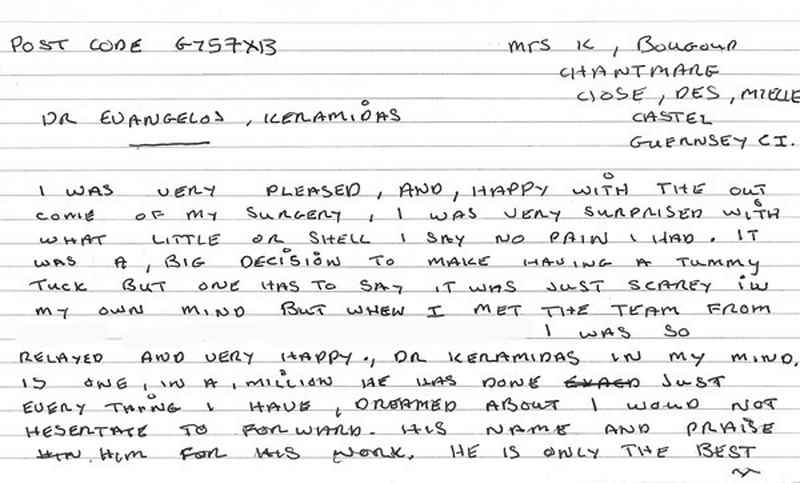 POST CODE GY57XB
MRS K, BOUGOUR
CHANTMARE
CLOSE, DES, MIELLE
CASTEL
GUERNSEY CI.
DR EVANGELOS, KERAMIDAS
I WAS VERY PLEASED, AND, HAPPY WITH THE OUT
COME OF MY SURGERY, I WAS VERY SURPRISED WITH
WHAT LITTLE OR SHELL I SAY NO PAIN I HAD. IT
WAS A, BIG DECISION TO MAKE HAVING A TUMMY
TUCK BUT ONE HAS TO SAY IT WAS JUST SCAREY IN
MY OWN MIND BUT WHEN I MET THE TEAM FROM
I WAS SO
RELAYED AND VERY HAPPY., DR KERAMIDAS IN MY MIND,
IS ONE, IN A, MILLION HE HAS DONE JUST
EVERY THING I HAVE, DREAMED ABOUT I WOUD NOT
HESERTATE TO FORWARD. HIS NAME AND PRAISE
HIM FOR HIS WORK. HE IS ONLY THE BEST